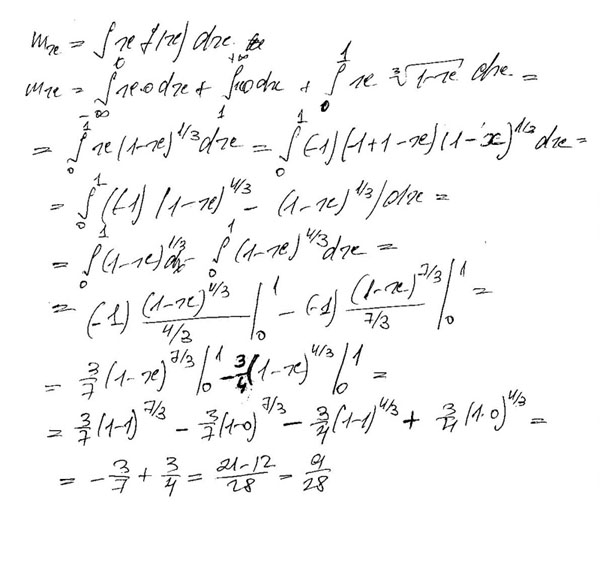 m_x = ∫ x f(x) dx
m_x = ∫_{-∞}^{0} x·0dx + ∫_{1}^{+∞} x0dx + ∫_{0}^{1} x ∛(1-x) dx =
= ∫_{0}^{1} x(1-x)^{1/3} dx = ∫_{0}^{1} (-1)(-1+1-x)(1-x)^{1/3} dx =
= ∫_{0}^{1} (-1)((1-x)^{4/3} - (1-x)^{1/3}) dx =
= ∫_{0}^{1} (1-x)^{1/3} dx - ∫_{0}^{1} (1-x)^{4/3} dx =
= (-1) (1-x)^{4/3}/(4/3) |_{0}^{1} - (-1) (1-x)^{7/3}/(7/3) |_{0}^{1} =
= 3/7 (1-x)^{7/3} |_{0}^{1} - 3/4 (1-x)^{4/3} |_{0}^{1} =
= 3/7 (1-1)^{7/3} - 3/7 (1-0)^{7/3} - 3/4 (1-1)^{4/3} + 3/4 (1-0)^{4/3} =
= - 3/7 + 3/4 = (21-12)/28 = 9/28